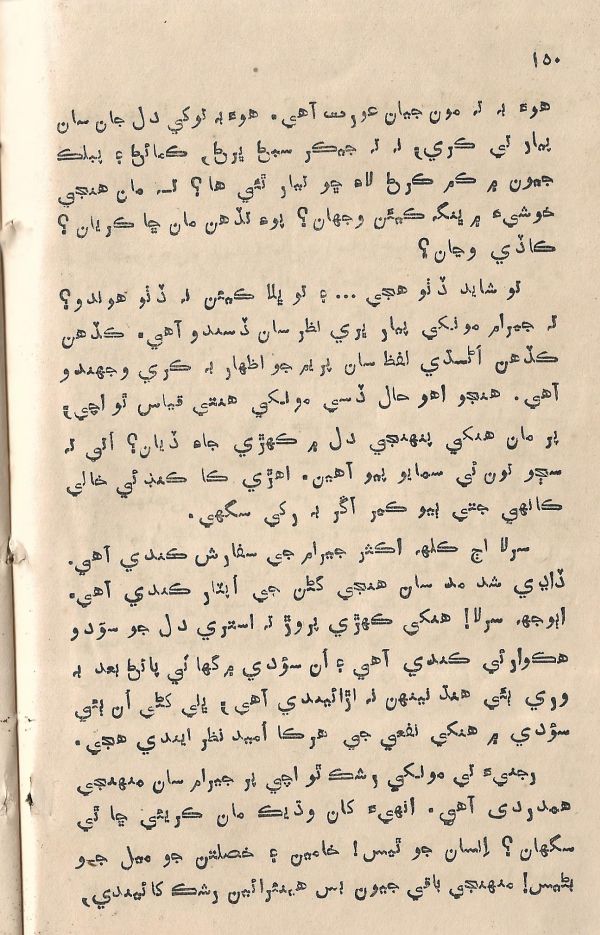 ١٥٠
هوءَ بہ تہ مون جيان عورت آهي. هوءَ بہ توکي دل جان سان
پيار ٿي ڪري، نہ تہ جيڪر سڀڻ ڀرڻ، ڪمائڻ ۽ پبلڪ
جيون ۾ ڪم ڪرڻ لاءِ ڇو تيار ٿئي ها؟ تہ مان هنجي
خوشيءَ ۾ ڀنگ ڪيئن وجهان؟ پوءِ تڏهن مان ڇا ڪريان؟
ڪاڏي وڃان؟
تو شايد ڏٺو هجي ... ۽ تو ڀلا ڪيئن نہ ڏٺو هوندو؟
تہ جيرام مونکي پيار ڀري نظر سان ڏسندو آهي. ڪڏهن
ڪڏهن اڻسڌي لفظ سان پريم جو اظهار بہ ڪري وجهندو
آهي. هنجو اهو حال ڏسي مونکي هنتي قياس ٿو اچي،
پر مان هنکي پنهنجي دل ۾ ڪهڙي جاءِ ڏيان؟ اُتي تہ
سڄو تون ئي سمايو پيو آهين. اهڙي ڪا ڪنڊ ئي خالي
ڪانهي جتي ٻيو ڪير آڱر بہ رکي سگهي.
سرلا اڄ ڪلهہ اڪثر جيرام جي سفارش ڪندي آهي.
ڏاڍي شد مد سان هنجي گڻن جي اُپٽار ڪندي آهي.
اٻوجهہ سرلا! هنکي ڪهڙي پروڙ تہ استري دل جو سؤدو
هڪوار ئي ڪندي آهي ۽ اُن سؤدي ۾ گهاٽي پائڻ بعد بہ
وري ٻئي هنڌ نينهن نہ اڙائيندي آهي، ڀلي کڻي اُن ٻئي
سؤدي ۾ هنکي نفعي جي هرڪا اُميد نظر ايندي هجي.
رجنيءَ تي مونکي رشڪ ٿو اچي پر جيرام سان منهنجي
همدردي آهي. انهيءَ کان وڌيڪ مان ڪري ئي ڇا ٿي
سگهان؟ اِنسان جو ٿيس! خامين ۽ خصلتن جو ميل جو
بڻيس! منهنجي باقي جيون بس رشڪ کائيندي،